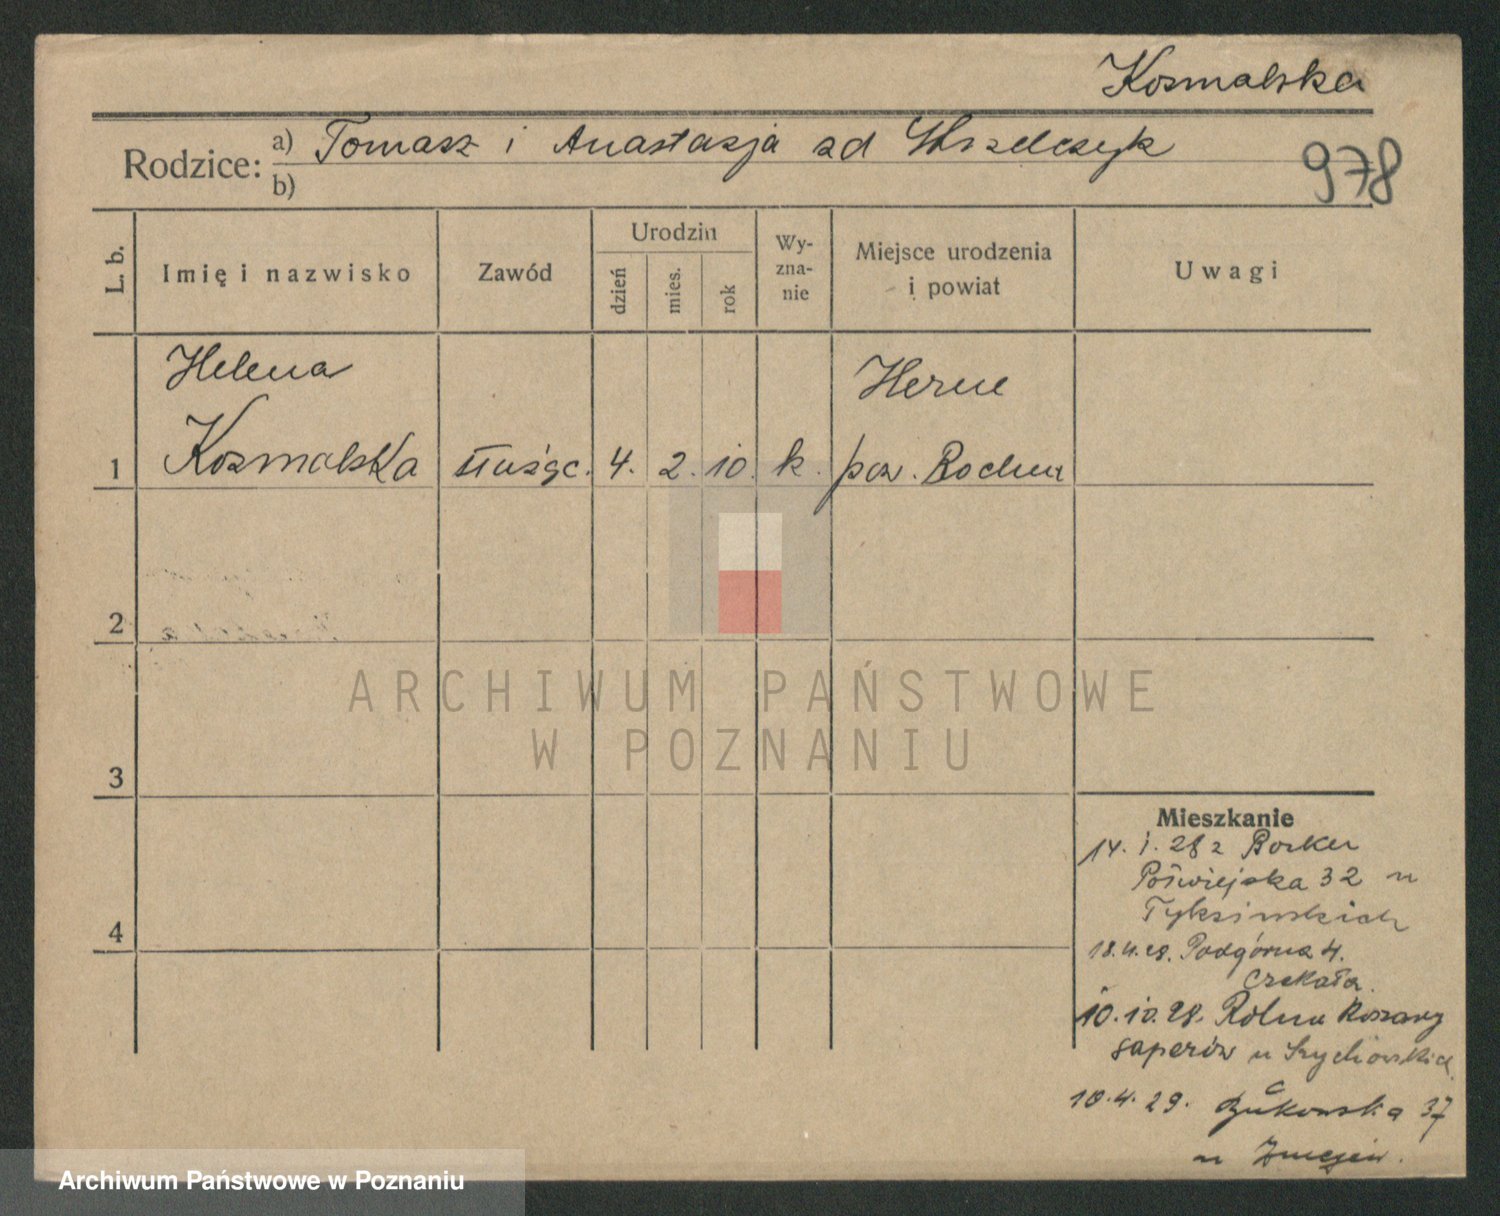 Kozmalska
Rodzice: a) Tomasz i Anastazja zd
b)
978
L. b.
Imię i nazwisko
Zawód
Urodzin
dzień
mies.
rok
Wy-
zna-
nie
Miejsce urodzenia
i powiat
Uwagi
Helena
Herne
1 Kozmalska służąc. 4. 2. 10. k. pow. Bochum
2
3
4
ARCHIWUM PAŃSTWOWE
W POZNANIU
Mieszkanie
14. 1. 28 z Borker
Poświejska 32 u
18.4.28. Podgórna 4.
Czekała.
10.10.28. Rolna Koszary
saperów u
10.4.29. Bukowska 37
u
Archiwum Państwowe w Poznaniu